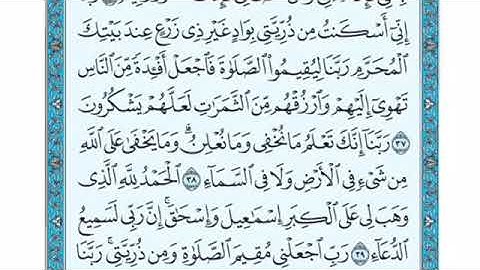 إِنِّي أَسْكَنتُ مِن ذُرِّيَّتِي بِوَادٍ غَيْرِ ذِي زَرْعٍ عِندَ بَيْتِكَ
الْمُحَرَّمِ رَبَّنَا لِيُقِيمُوا الصَّلَوٰةَ فَاجْعَلْ أَفْـِٔدَةً مِّنَ النَّاسِ
تَهْوِي إِلَيْهِمْ وَارْزُقْهُم مِّنَ الثَّمَرَاتِ لَعَلَّهُمْ يَشْكُرُونَ
٣٧ رَبَّنَا إِنَّكَ تَعْلَمُ مَا نُخْفِي وَمَا نُعْلِنُ ۗ وَمَا يَخْفَىٰ عَلَى اللَّهِ
مِن شَيْءٍ فِي الْأَرْضِ وَلَا فِي السَّمَاءِ ٣٨ الْحَمْدُ لِلَّهِ الَّذِي
وَهَبَ لِي عَلَى الْكِبَرِ إِسْمَاعِيلَ وَإِسْحَٰقَ ۚ إِنَّ رَبِّي لَسَمِيعُ
الدُّعَاءِ ٣٩ رَبِّ اجْعَلْنِي مُقِيمَ الصَّلَوٰةِ وَمِن ذُرِّيَّتِي ۚ رَبَّنَا